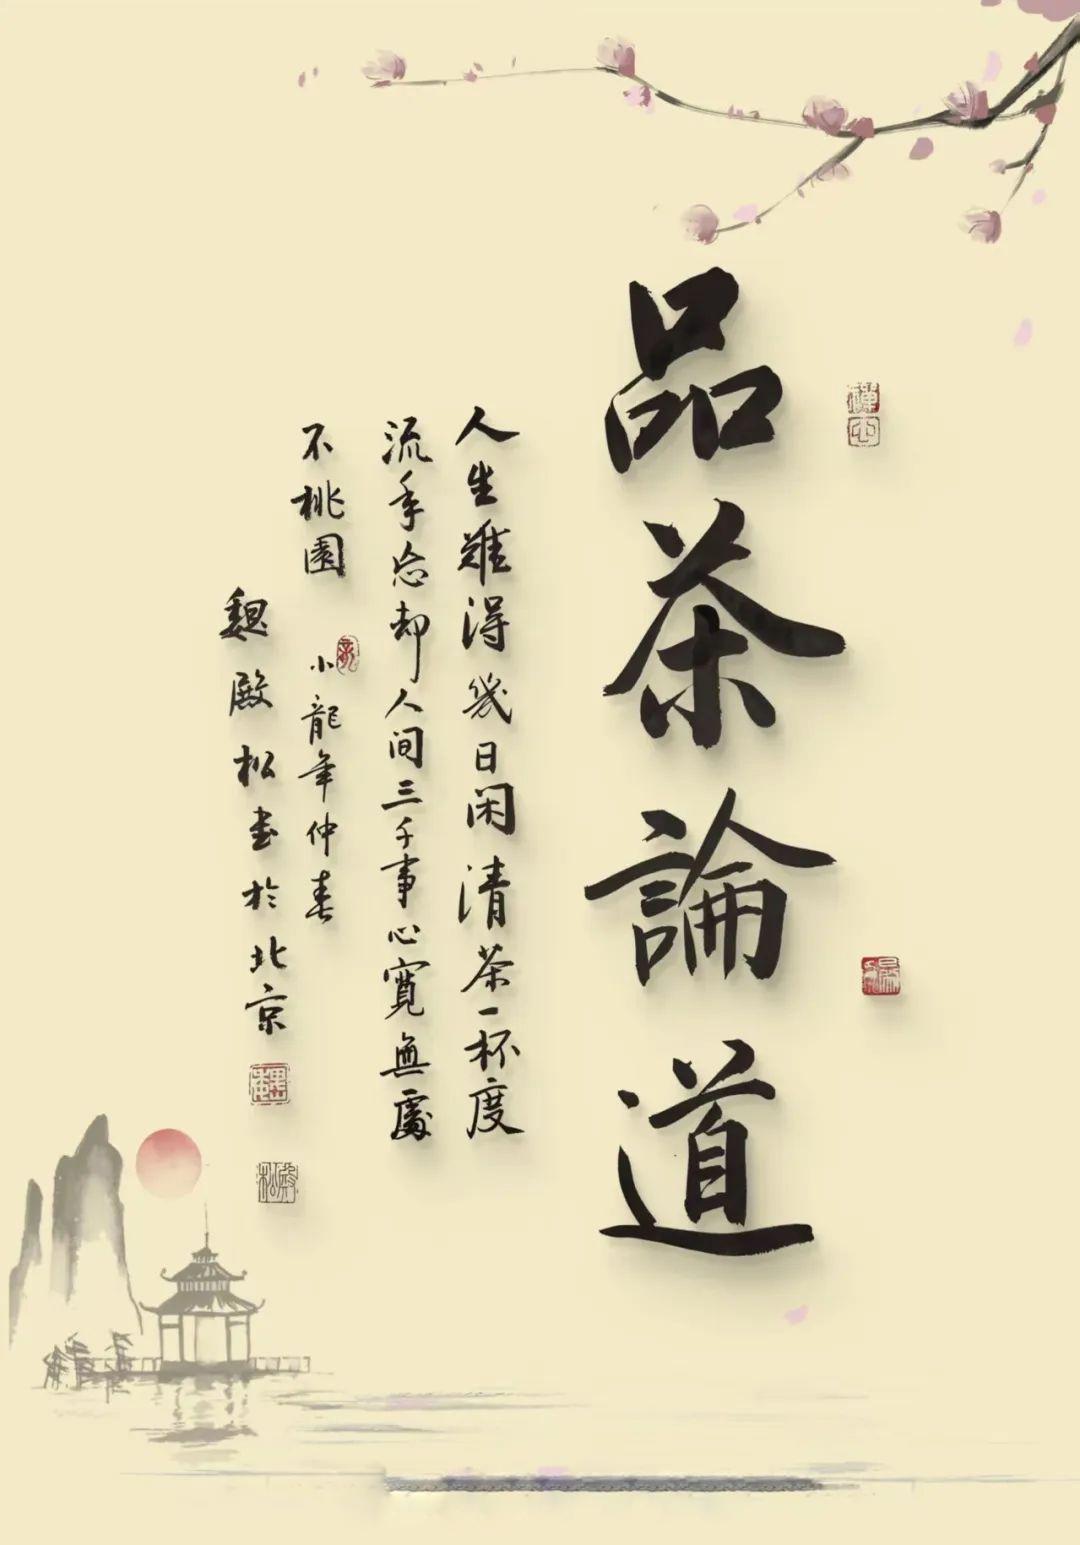 品茶論道
人生難得幾日闲清茶一杯度
流年忘却人间三千事心寬無處
不桃園
小龍年仲春
魏殿松书於北京
禪心
殿松